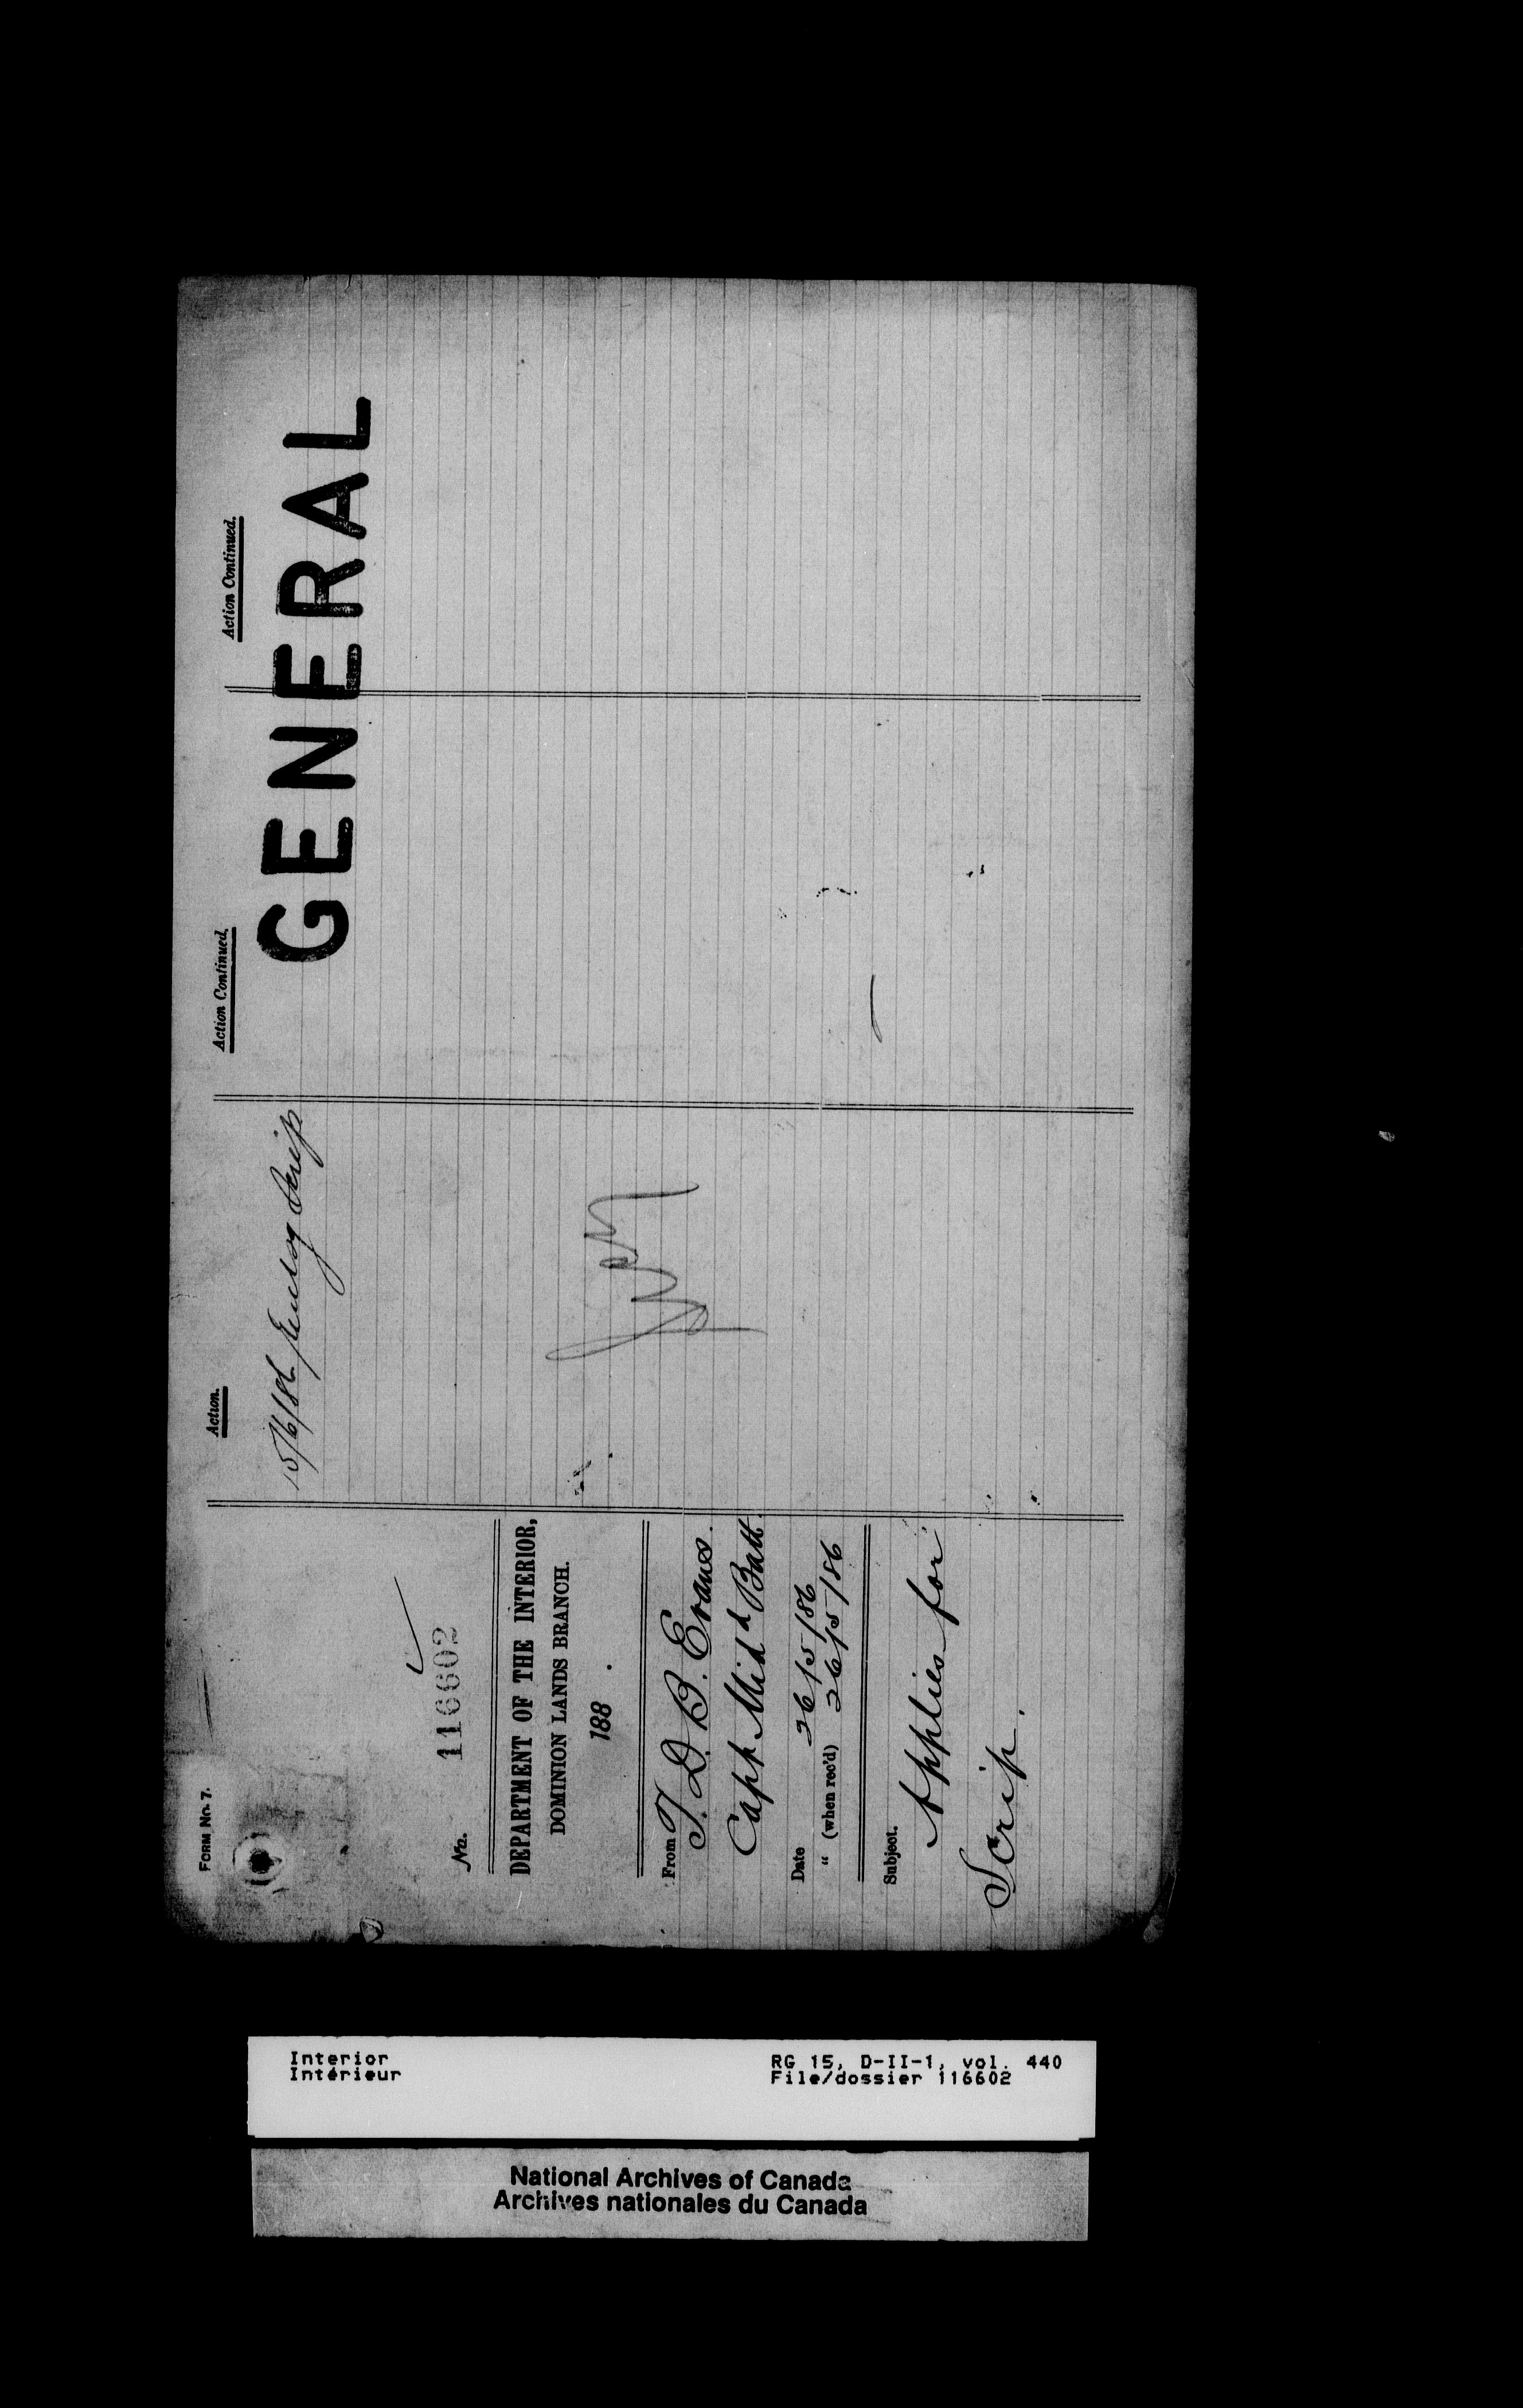 FORM No. 7.
No. 116602
DEPARTMENT OF THE INTERIOR,
DOMINION LANDS BRANCH.
188 .
From T. D. B. Evans.
Capt. Midd Batt.
Date 26/5/86
" (when rec'd) 26/5/86
Subject.
Applies for
Scrip.
Action.
15/6/86 Enclog Scrip
Action Continued.
GENERAL
Action Continued.
Interior
Intérieur
RG 15, D-II-1, vol. 440
File/dossier 116602
National Archives of Canada
Archives nationales du Canada